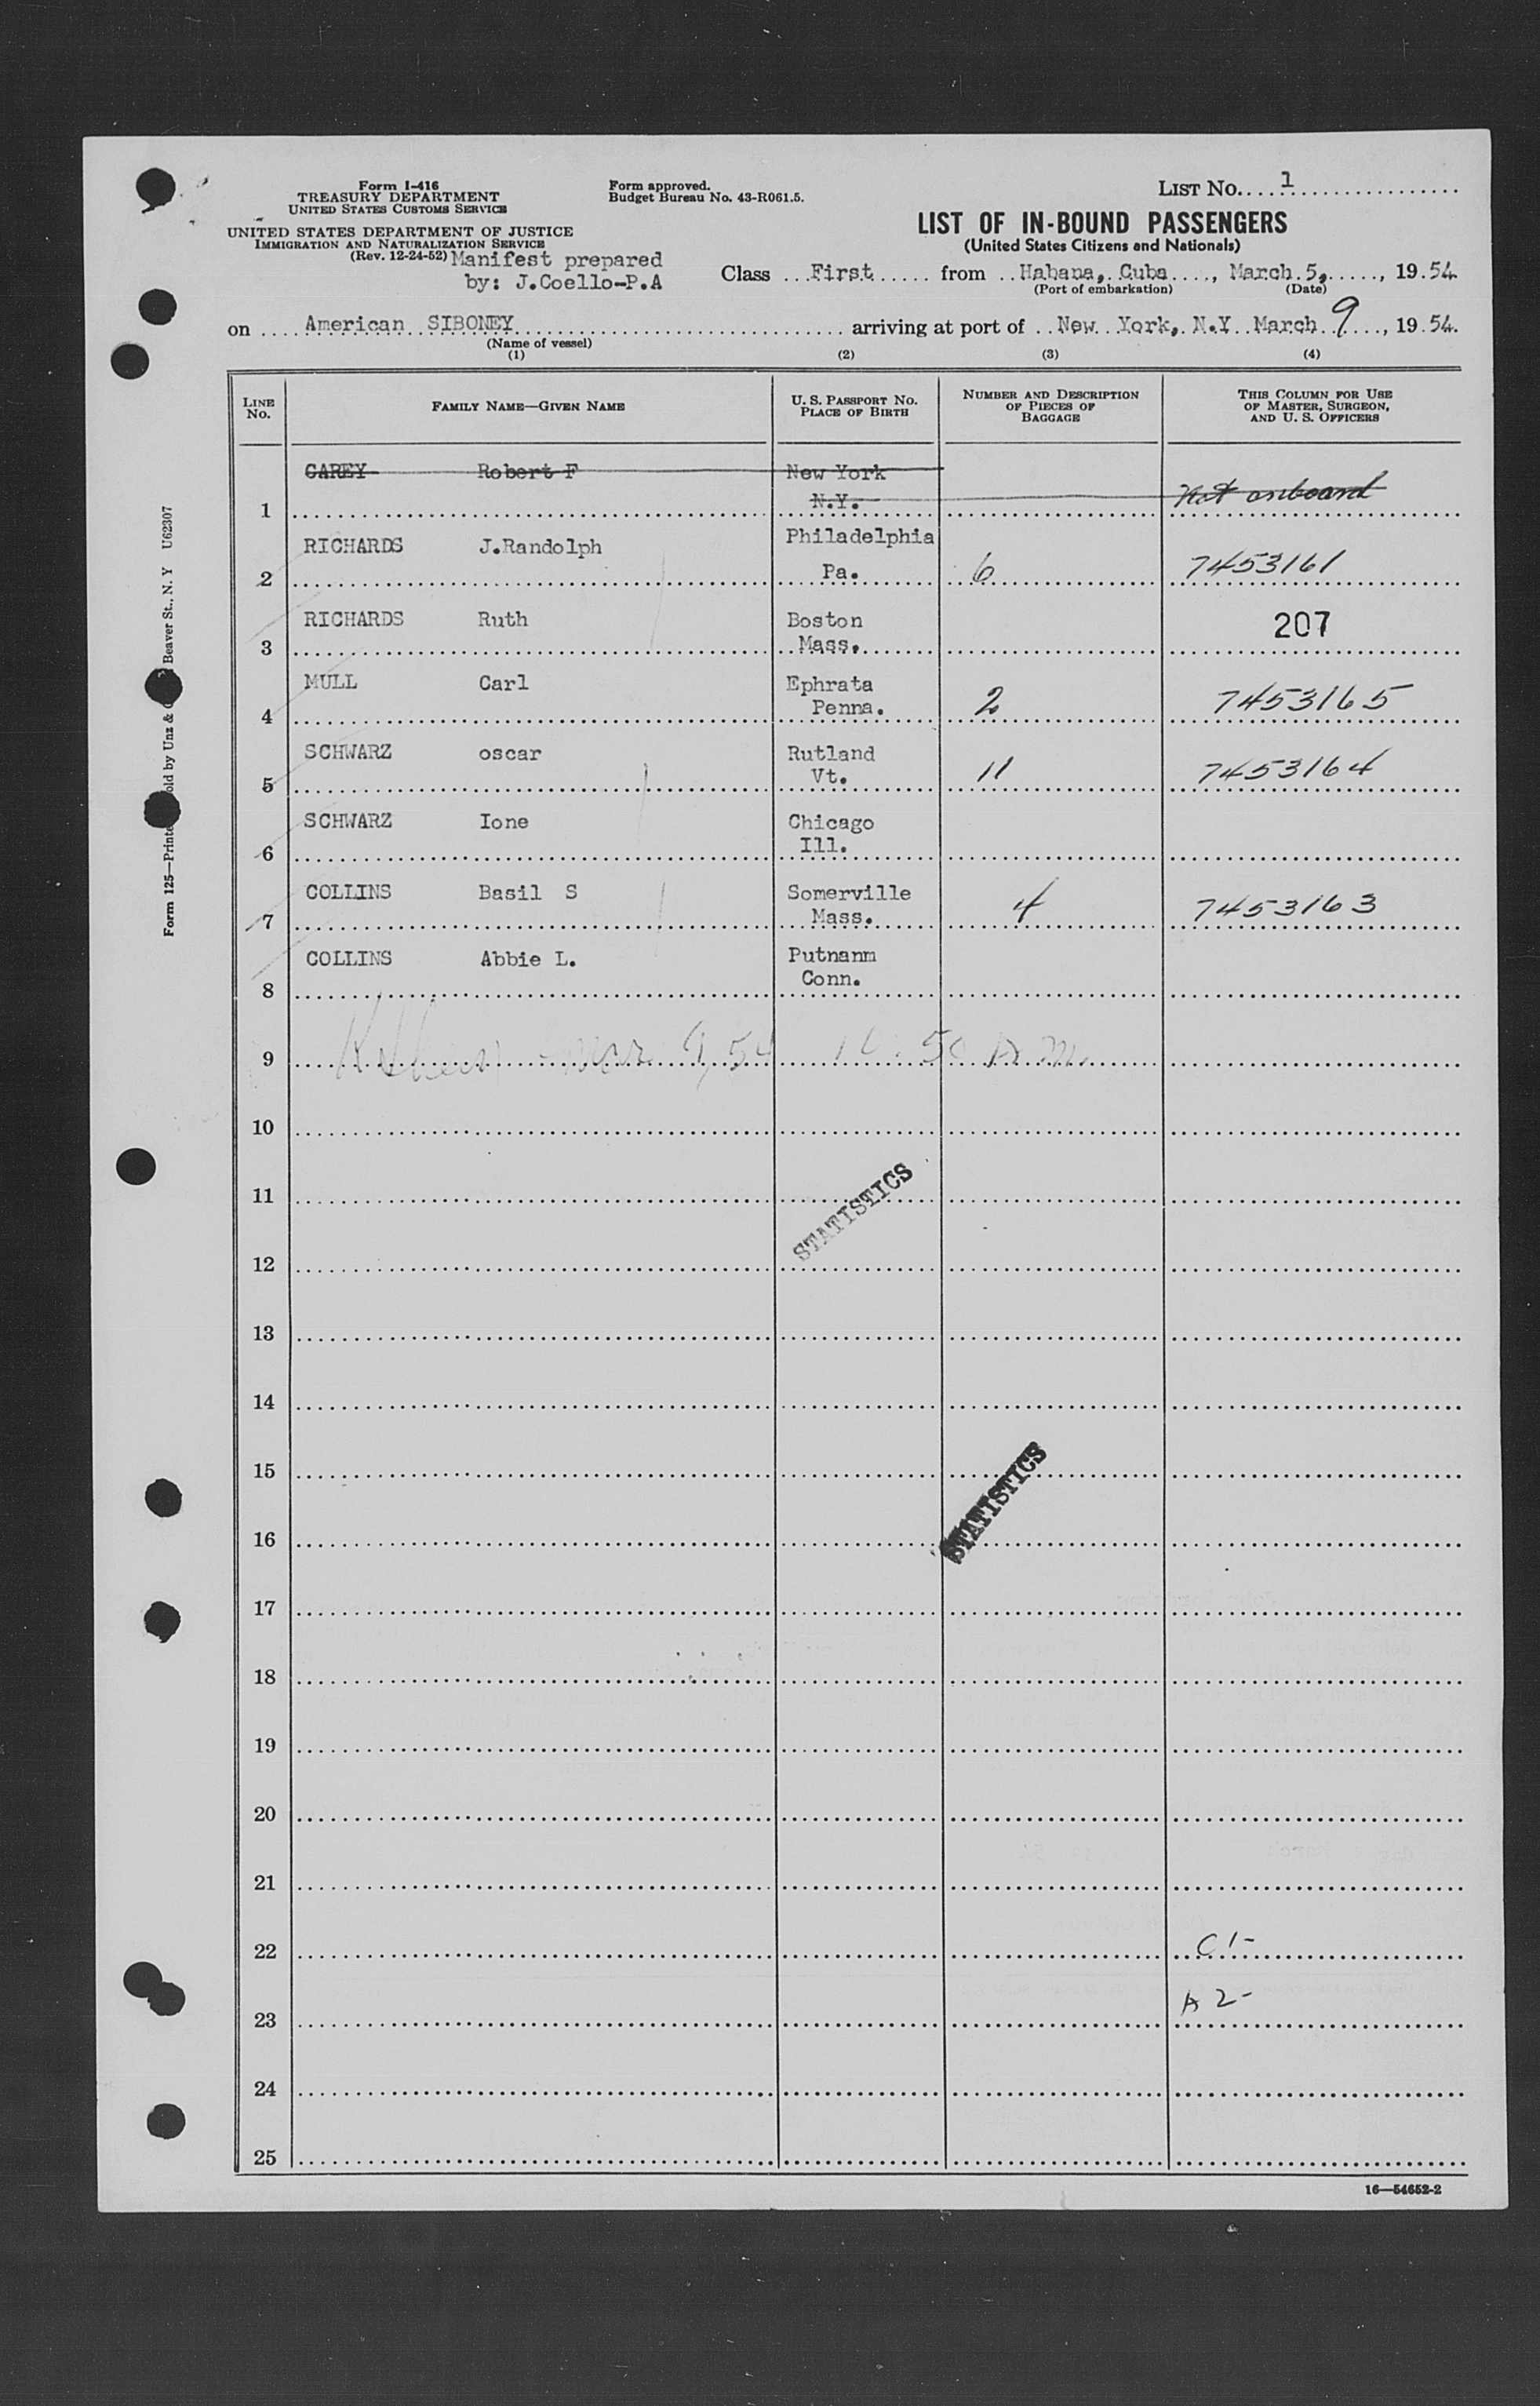 Form I-416
TREASURY DEPARTMENT
UNITED STATES CUSTOMS SERVICE
UNITED STATES DEPARTMENT OF JUSTICE
IMMIGRATION AND NATURALIZATION SERVICE
(Rev. 12-24-52) Manifest prepared
by: J.Coello-P.A
Form approved.
Budget Bureau No. 43-R061.5.
LIST NO. 1
LIST OF IN-BOUND PASSENGERS
(United States Citizens and Nationals)
Class First from Habana, Cuba, March 5, 1954
(Port of embarkation) (Date)
on American SIBONEY arriving at port of New York, N.Y March 9, 1954.
(Name of vessel)
(1) (2) (3) (4)
LINE No. FAMILY NAME—GIVEN NAME U. S. PASSPORT NO. PLACE OF BIRTH NUMBER AND DESCRIPTION OF PIECES OF BAGGAGE THIS COLUMN FOR USE OF MASTER, SURGEON, AND U. S. OFFICERS
CAREY Robert F New York
1 N.Y. Not onboard
RICHARDS J.Randolph Philadelphia
2 Pa. 6 7453161
RICHARDS Ruth Boston 207
3 Mass.
MULL Carl Ephrata
4 Penna. 2 7453165
SCHWARZ oscar Rutland
5 Vt. 11 7453164
SCHWARZ Ione Chicago
6 Ill.
COLLINS Basil S Somerville
7 Mass. 4 7453163
COLLINS Abbie L. Putnanm
8 Conn.
9 Mar 9, 54 A.M.
10
11
STATISTICS
12
13
14
15
STATISTICS
16
17
18
19
20
21
22 C 1-
23 A 2-
24
25
16—54652-2
Form 125—Printe old by Unz & Beaver St., N. Y U62307